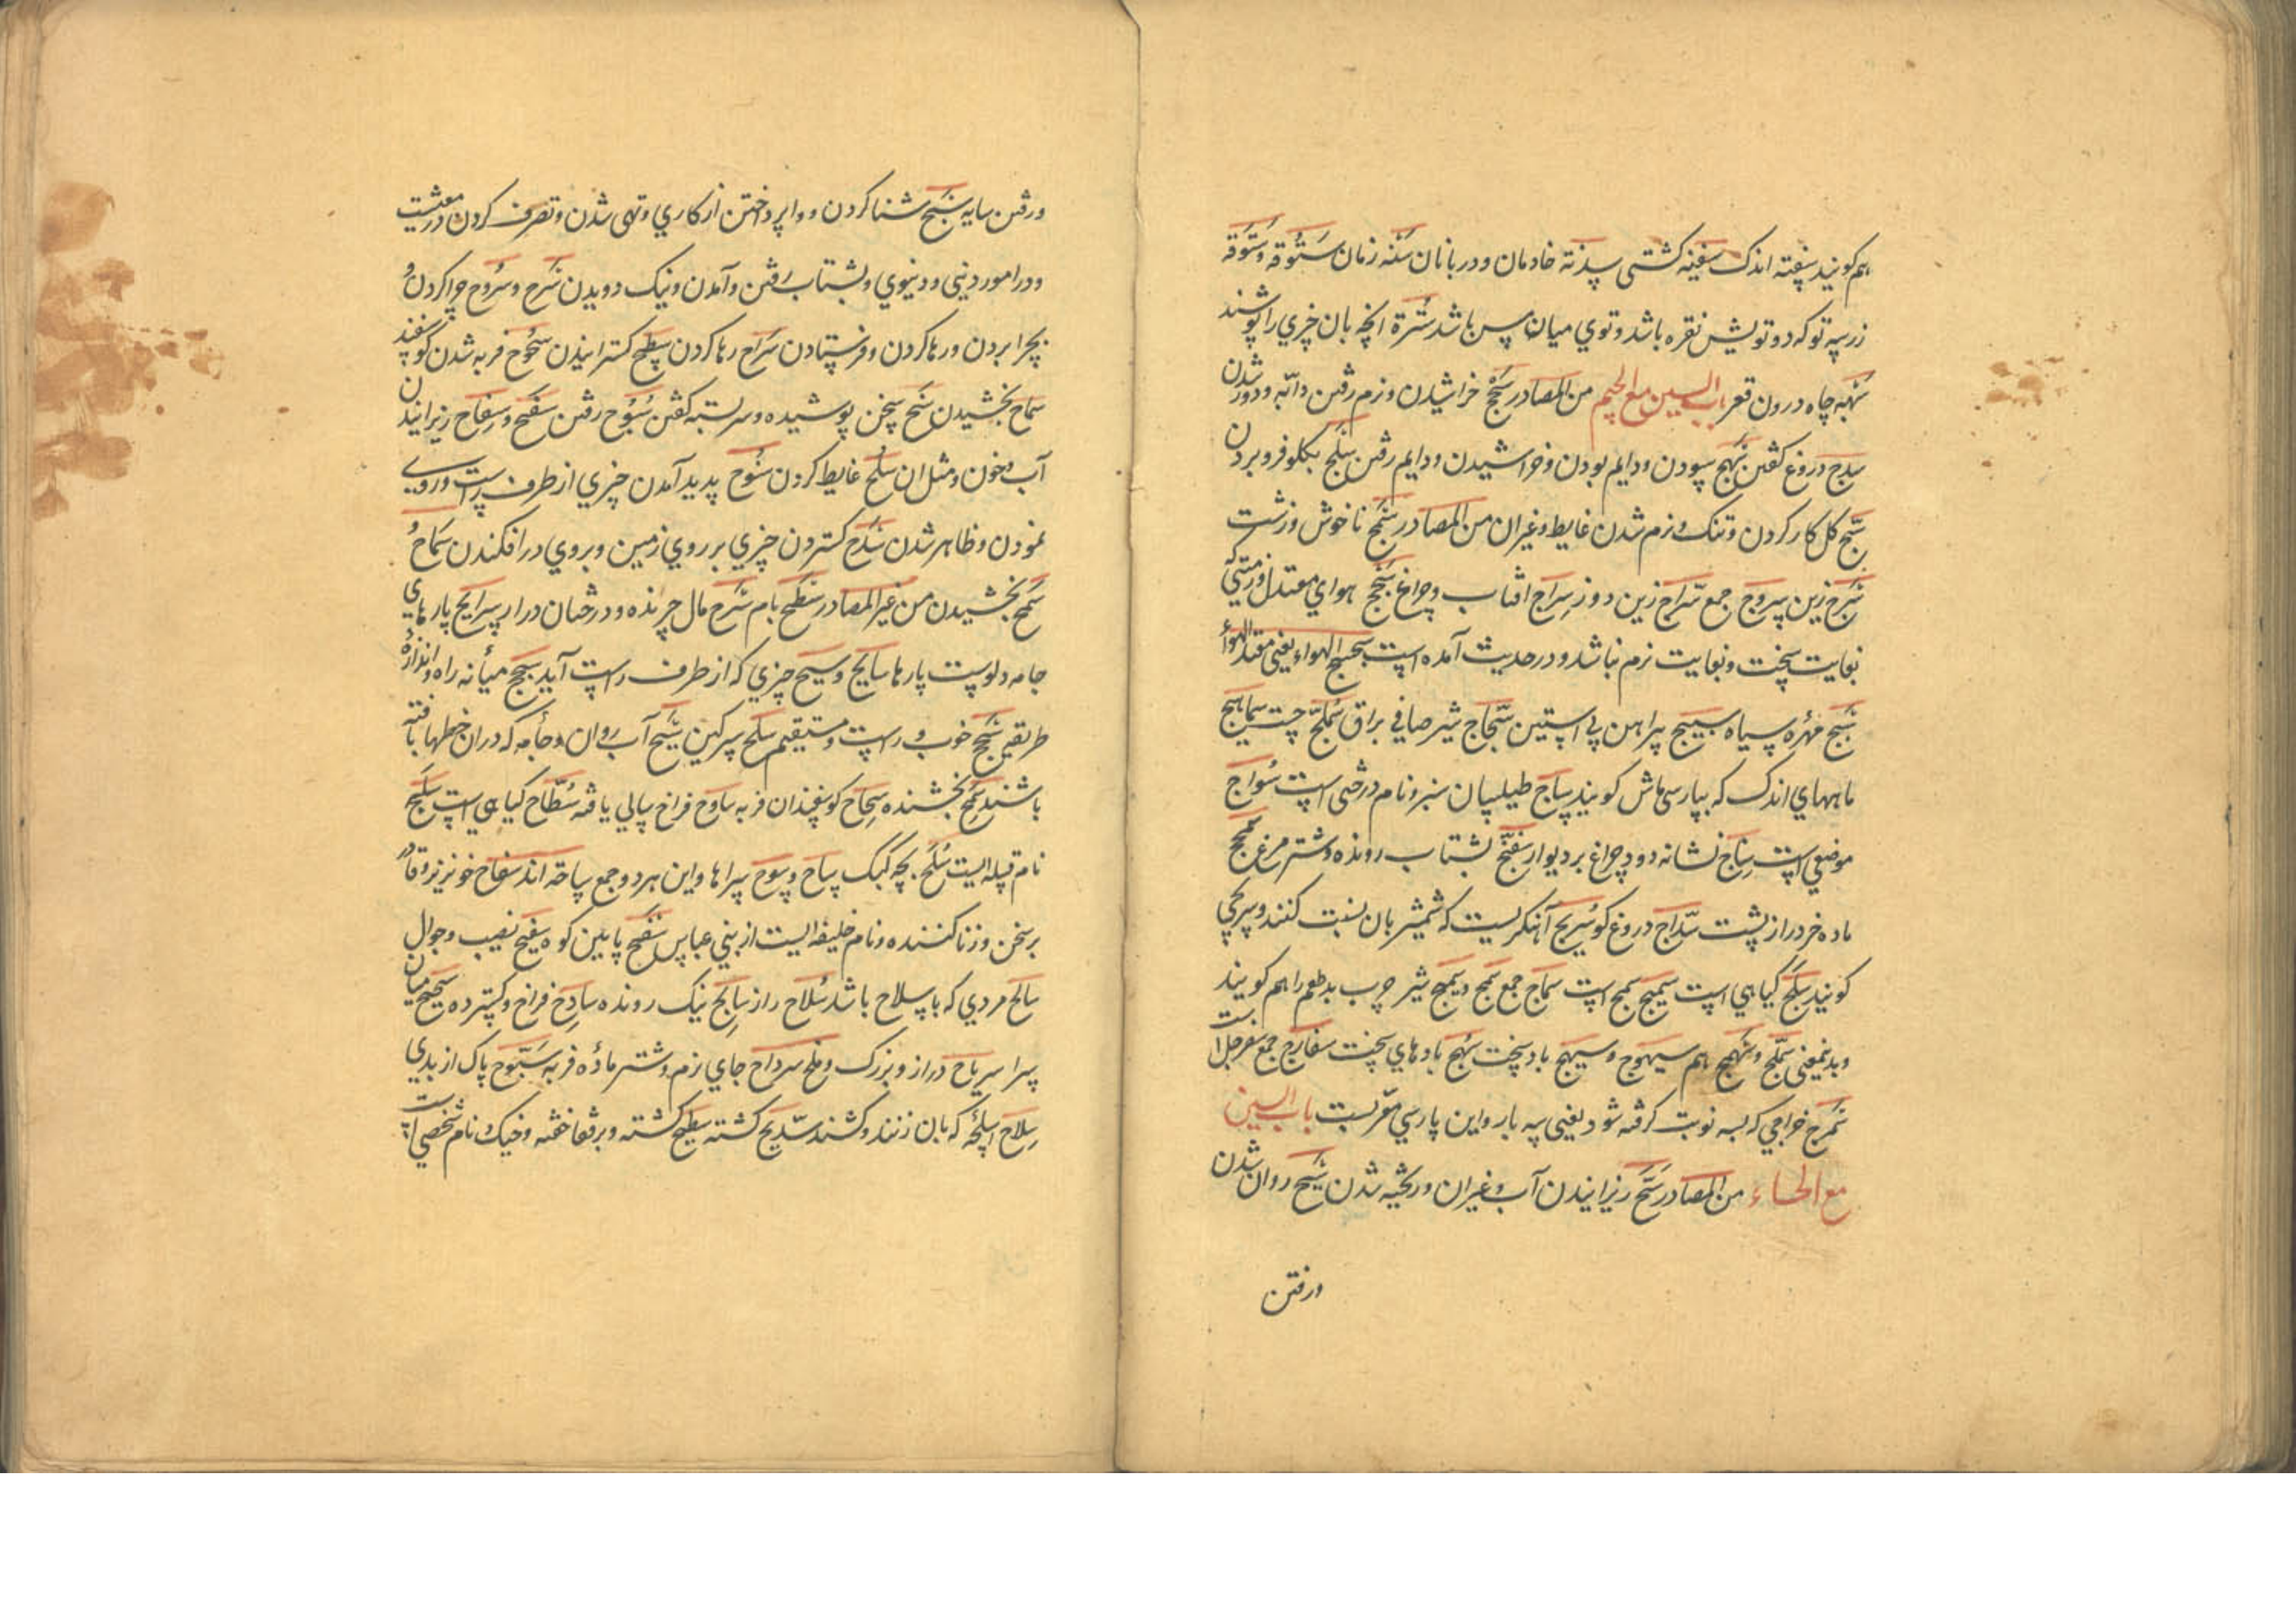 هم کویند سفته اندک سفینه کشتی سدنة خادمان و دربانان سنه زمان ستوقه و ستوقه
زر سه تو که دو تویش نقره باشد و توی میان مس باشد سترة انچه بان چیزی را پوشند
سهبه چاه درون قعر باب السین مع الجیم من المصادر سحج خراشیدن و نرم رفتن دابه و دور شدن
سدج دروغ کفتن سهج سودن و دایم بودن و خراشیدن و دایم رفتن سلج بکلو فرو بردن
سج کل کار کردن و تنک و نرم شدن غایط و غیر ان من المصادر سمج ناخوش و زشت
سرج زین سروج جمع سراج زین دوز سراج افتاب و چراغ سجج هوای معتدل و زمینی که
بغایت سخت و بغایت نرم نباشد و در حدیث آمده است سجسج الهواء یعنی معتدل الهواء
سبج مهره سیاه سبیج پیراهن بی استین سجاج شیر صافی براق سملج چست سماهیج
ماههای اندک که بپارسی ماش کویند ساج طیلسان سبز و نام درختی است سواج
موضعی است سناج نشانه دود چراغ بر دیوار سفنج بشتاب رونده و شتر مرغ سمحج
ماده خر دراز پشت سداج دروغ کو سریج آهنکریست که شمشیر بان نسبت کنند و سریجی
کویند سلج کیاهی است سمیج سمج است سماج جمع سمج و سمج شیر چرب بد طعم را هم کویند
و بدینمعنی سملج و سمهج هم سیهوج و سیهج باد سخت سهج بادهای سخت سفارج جمع سفرجل است
سمرج خراجی که بسه نوبت کرفته شود یعنی سه بار و این پارسی معربست باب السین
مع الحاء من المصادر سح ریزانیدن آب و غیر ان و ریخته شدن سیح روان شدن
و رفتن
و رفتن سایه سبح شنا کردن و واپرداختن از کاری و تهی شدن و تصرف کردن در معیشت
و در امور دینی و دنیوی و بشتاب رفتن و آمدن و نیک دویدن سرح و سروح چرا کردن و
بچرا بردن و رها کردن و فرستادن سراح رها کردن سطح کسترانیدن سحوح فربه شدن کوسفند
سماح بخشیدن سنح سخن پوشیده و سربسته کفتن سبوح رفتن سفح و سفاح ریزانیدن
آب و خون و مثل ان سلح غایط کردن سنوح پدید آمدن چیزی از طرف راست و روی
نمودن و ظاهر شدن سدح کستردن چیزی بر روی زمین و بروی در افکندن سماح و
سمح بخشیدن من غیر المصادر سطح بام سرح مال چرنده و درختان دراز سرایح پارهای
جامه و پوست پارها سایح و سیح چیزی که از طرف راست آید سجح میانه راه و اندازه
طریق سجح خوب و راست و مستقیم سلح سرکین سیح آب روان و جامه که در ان خطها بافته
باشند سمح بخشنده سحاح کوسفندان فربه ساوح فراخ سالی یافته سطاح کیاهی است سلح
نام قبیله ایست سلح بچه کبک ساح و سوح سراها و این هر دو جمع ساحه اند سفاح خونریز و قادر
بر سخن و زنا کننده و نام خلیفه ایست از بنی عباس سفح پایین کوه سفیح نصیب و جوال
سالح مردی که با سلاح باشد سلاح راز سابح نیک رونده سادح فراخ و کسترده سحیح میان
سرا سریاح دراز و بزرک و ملخ سرداح جای نرم و شتر ماده فربه سبوح پاک از بدی
سلاح اسلحه که بان زنند و کشند سدیح کشته سطیح کشته و برقفا خفته و خیک و نام شخصی است